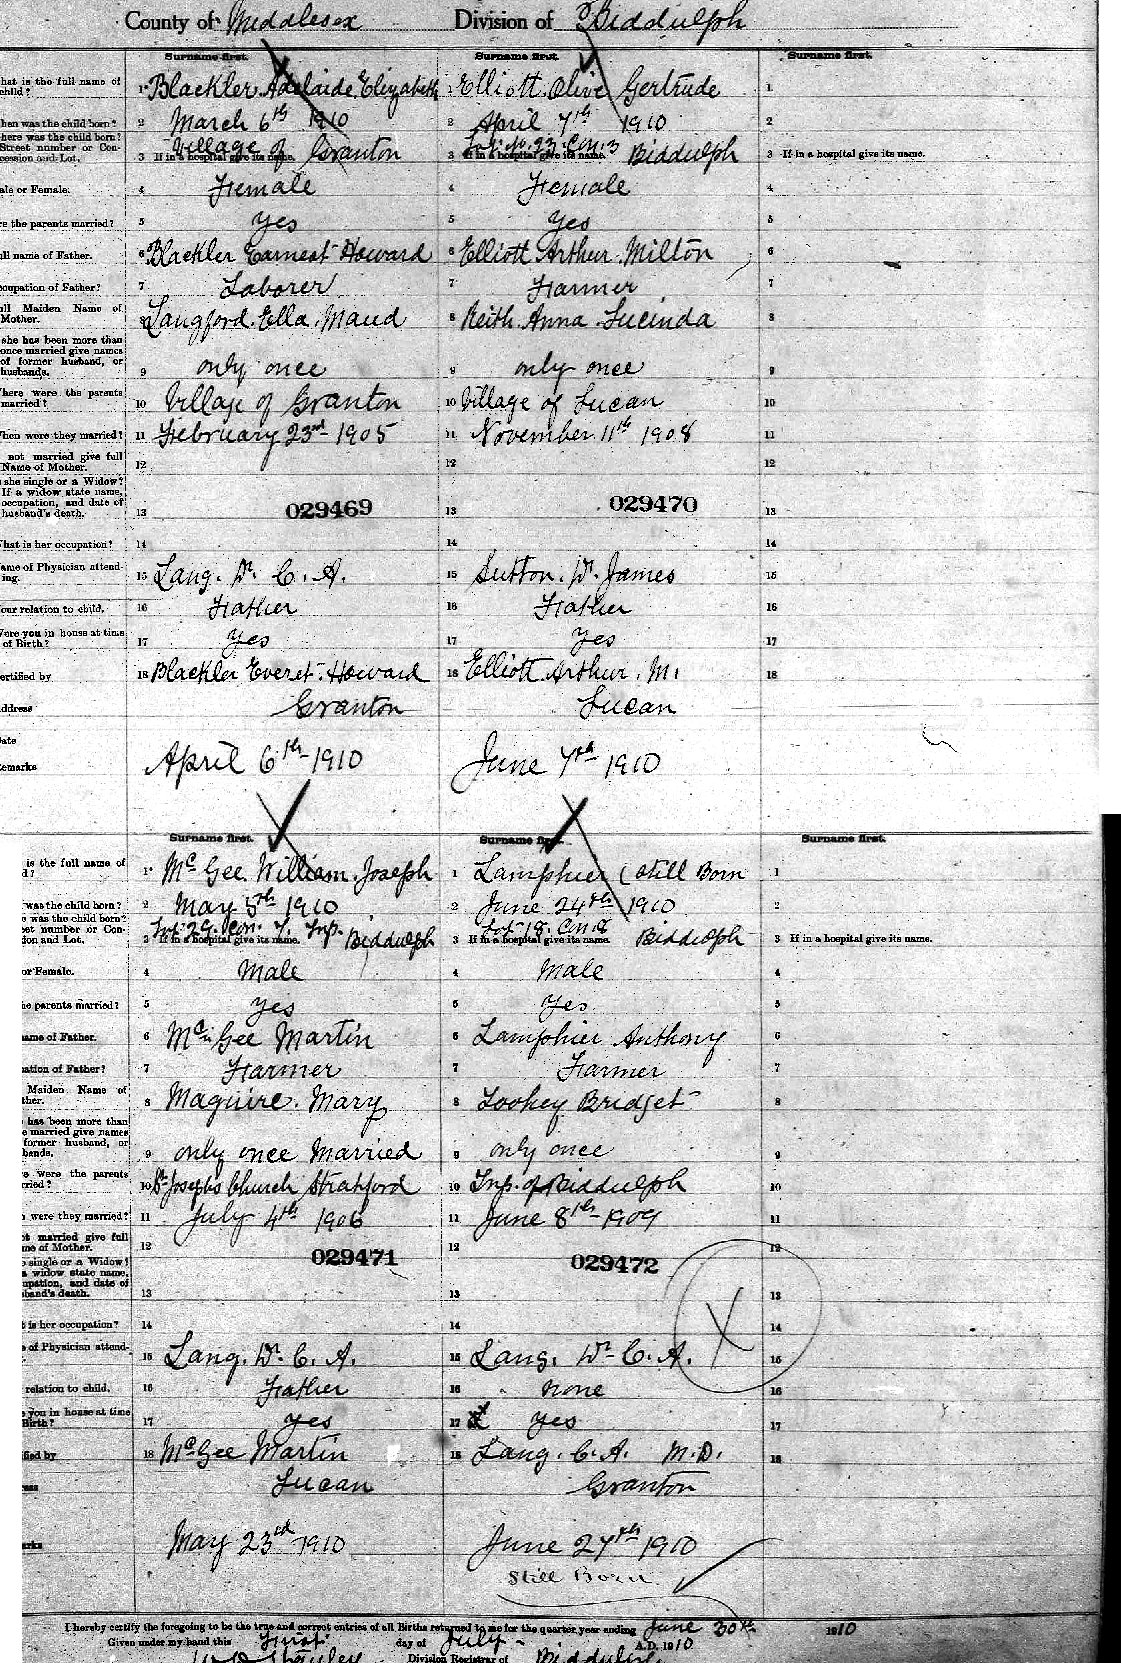 County of Middlesex Division of Biddulph
Surname first. Surname first. Surname first.
hat is the full name of child? 1 Blackler Adelaide Elizabeth 1 Elliott Olive Gertrude 1
hen was the child born? 2 March 6th 1910 2 April 7th 1910 2
here was the child born? Village of Lot No. 23. Con. 3
Street number or Con-
cession and Lot. 3 If in a hospital give its name. Granton 3 If in a hospital give its name. Biddulph 3 If in a hospital give its name.
ale or Female. 4 Female 4 Female 4
re the parents married? 5 yes 5 yes 5
ull name of Father. 6 Blackler Earnest Howard 6 Elliott Arthur Milton 6
ccupation of Father? 7 Laborer 7 Farmer 7
ull Maiden Name of Mother. 8 Langford Ella Maud 8 Keith Anna Lucinda 8
she has been more than
once married give names
of former husband, or
husbands. 9 only once 9 only once 9
here were the parents married? 10 Village of Granton 10 Village of Lucan 10
hen were they married? 11 February 23rd 1905 11 November 11th 1908 11
not married give full Name of Mother. 12 12 12
she single or a Widow?
If a widow state name,
occupation, and date of
husband's death. 13 029469 13 029470 13
hat is her occupation? 14 14 14
ame of Physician attend-
ing. 15 Lang. Dr. C. A. 15 Sutton. Dr. James 15
our relation to child. 16 Father 16 Father 16
ere you in house at time of Birth? 17 yes 17 yes 17
ertified by 18 Blackler Everet Howard 18 Elliott Arthur. M. 18
ddress Granton Lucan
ate
emarks April 6th 1910 June 7th 1910
Surname first. Surname first. Surname first.
is the full name of d? 1 McGee William Joseph 1 Lamphier (Still Born 1
was the child born? 2 May 5th 1910 2 June 24th 1910 2
e was the child born? Lot 29. Con. 7. Tnp. Lot 18. Con. 8
et number or Con-
ion and Lot. 3 If in a hospital give its name. Biddulph 3 If in a hospital give its name. Biddulph 3 If in a hospital give its name.
or Female. 4 Male 4 Male 4
e parents married? 5 yes 5 yes 5
ame of Father. 6 McGee Martin 6 Lamphier Anthony 6
ation of Father? 7 Farmer 7 Farmer 7
Maiden Name of ther. 8 Maguire. Mary 8 Toohey Bridget 8
has been more than
e married give names
former husband, or
bands. 9 only once Married 9 only once 9
e were the parents rried? 10 St Josephs Church Stratford 10 Tnp. of Biddulph 10
were they married? 11 July 4th 1906 11 June 8th 1909 11
ot married give full me of Mother. 12 029471 12 029472 12
single or a Widow?
a widow state name,
upation, and date of
sband's death. 13 13 13
t is her occupation? 14 14 14
e of Physician attend- 15 Lang. Dr. C. A. 15 Lang. Dr. C. A. 15
relation to child. 16 Father 16 none 16
you in house at time Birth? 17 yes 17 yes 17
fied by 18 McGee Martin 18 Lang. C. A. M.D. 18
ess Lucan Granton
rks May 23rd 1910 June 27th 1910
Still Born
I hereby certify the foregoing to be the true and correct entries of all Births returned to me for the quarter year ending June 30th 1910
Given under my hand this First day of July A.D. 1910
Division Registrar of Biddulph